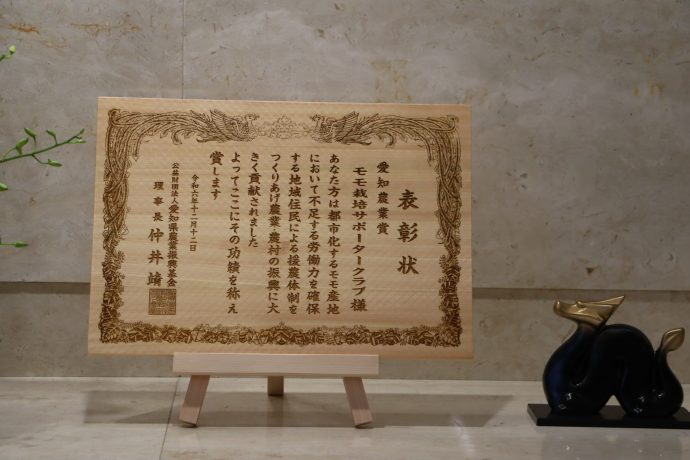 表彰状
愛知農業賞
モモ栽培サポータークラブ様
あなた方は都市化するモモ産地
において不足する労働力を確保
する地域住民による援農体制を
つくりあげ農業・農村の振興に大
きく貢献されました
よってここにその功績を称え
賞します
令和六年十二月十二日
公益財団法人愛知県農業振興基金
理事長 仲井靖